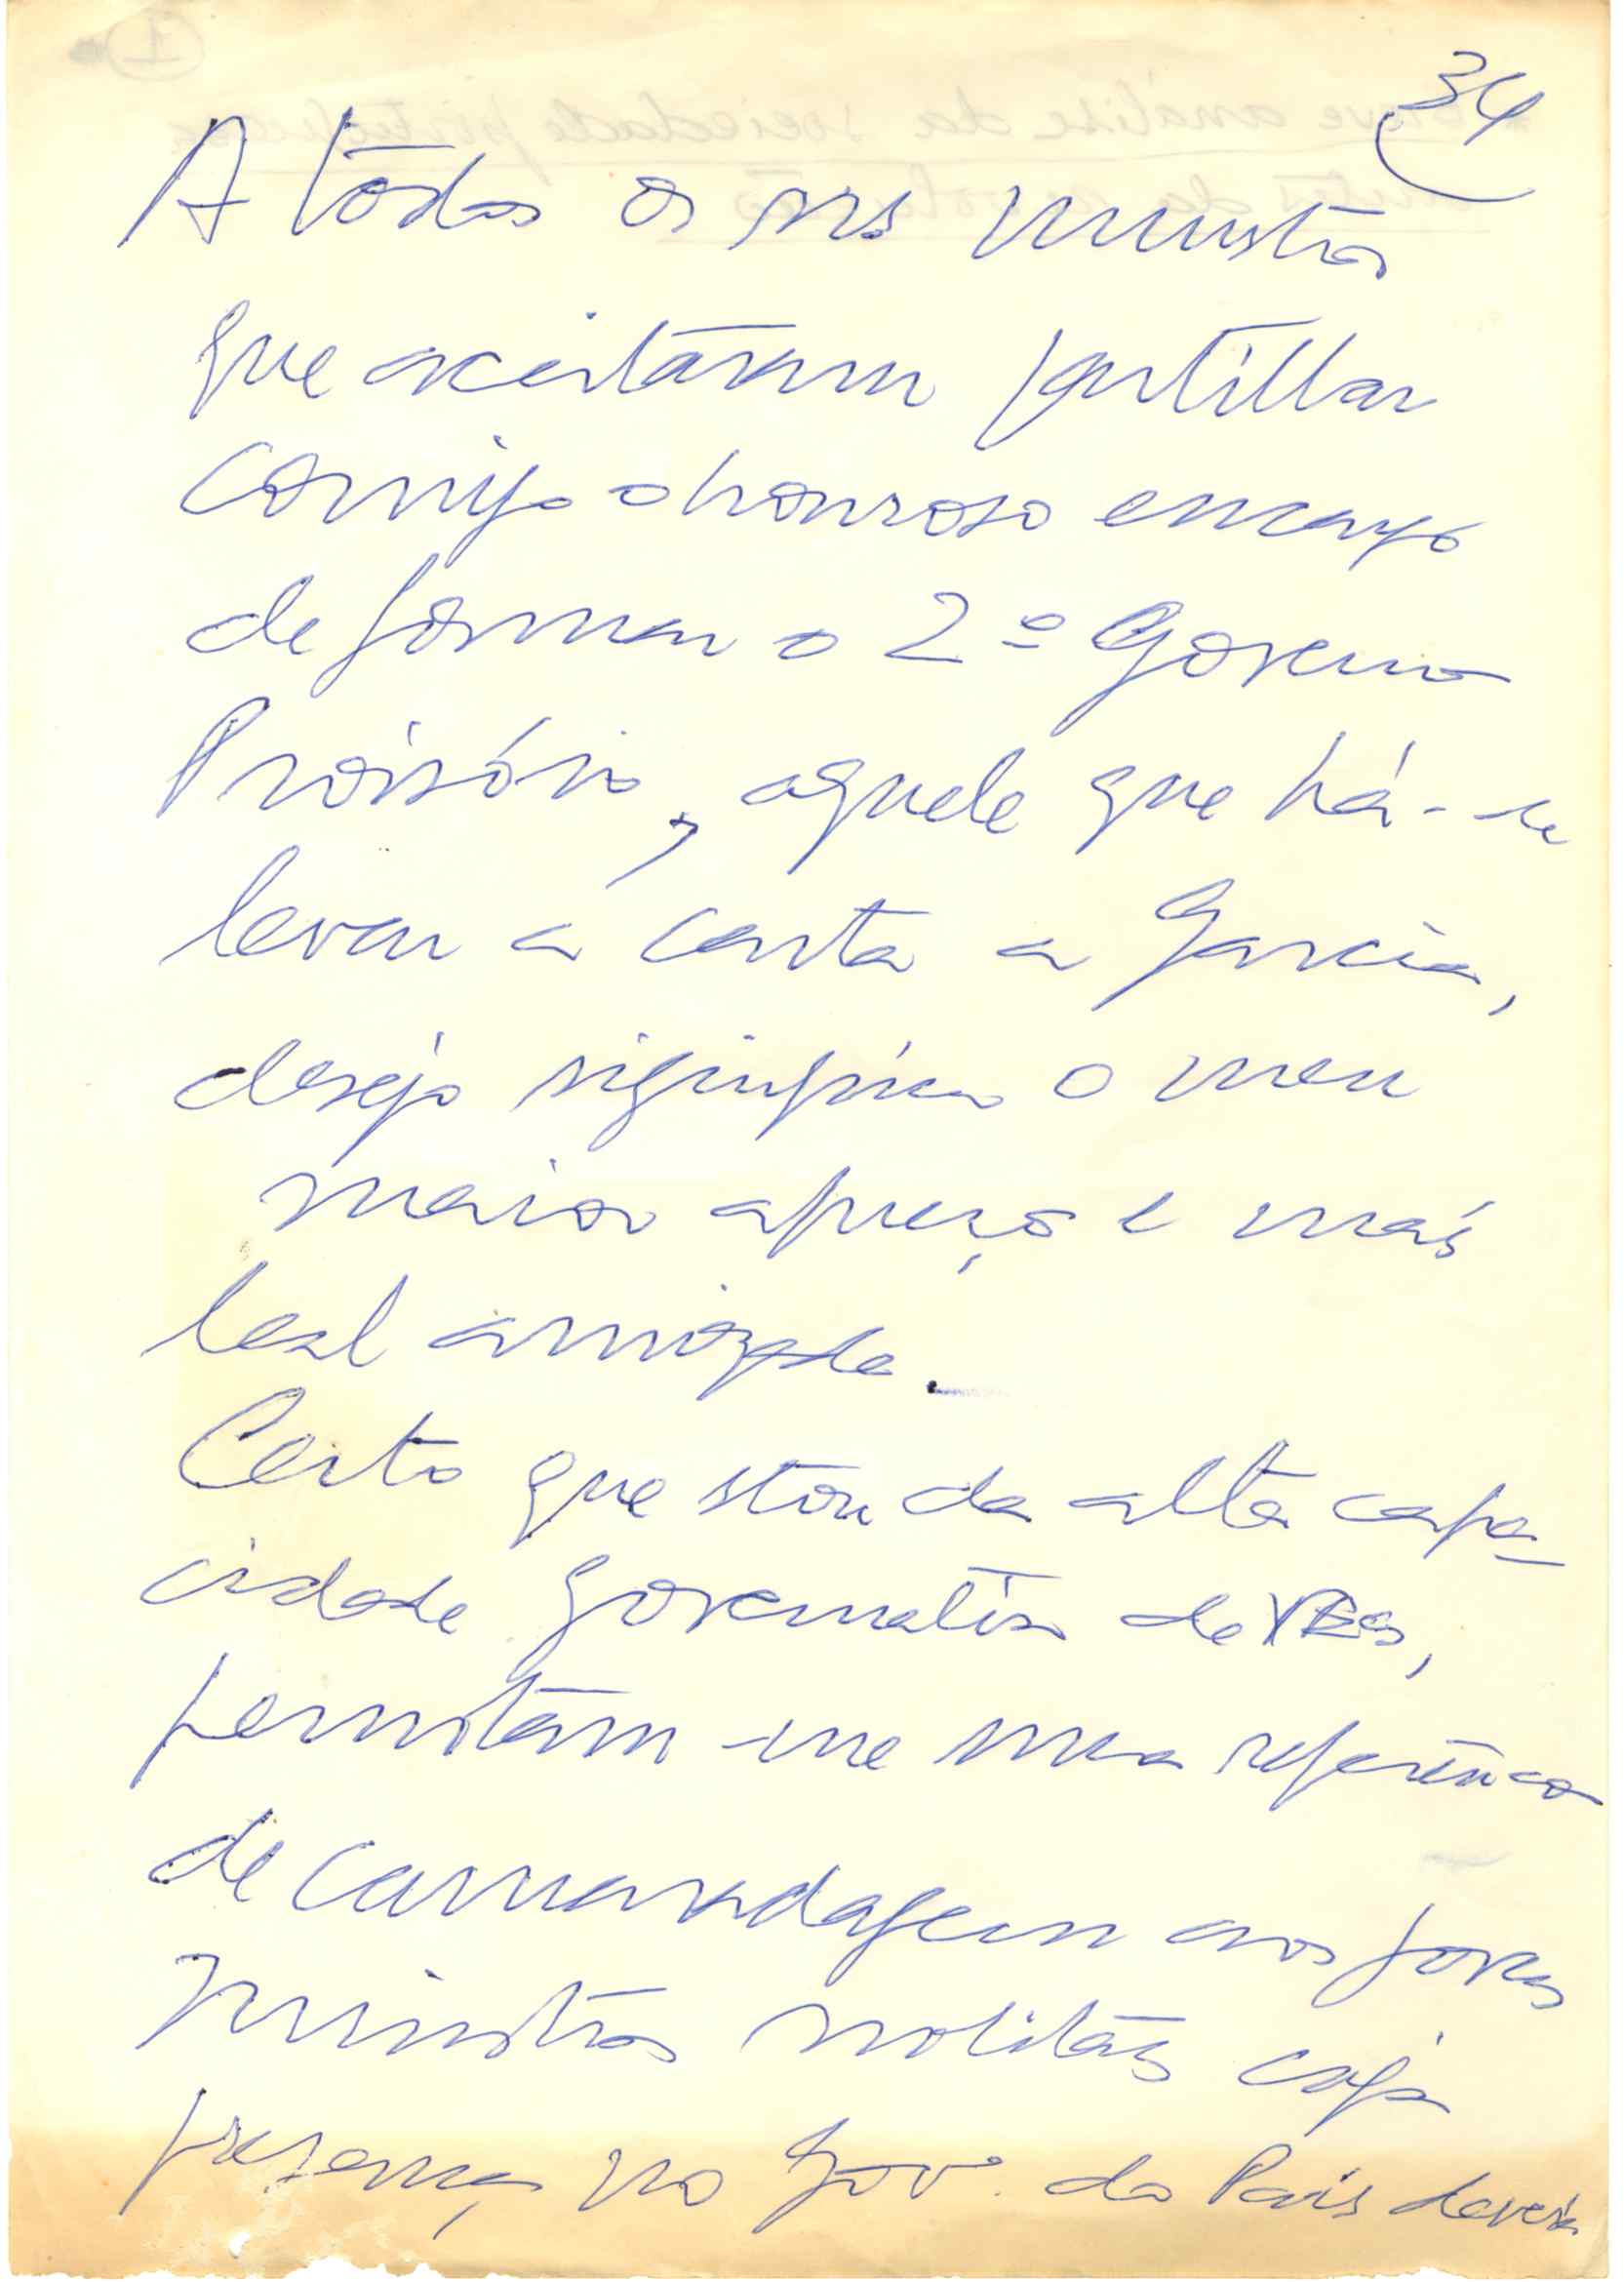 34
A todos os srs ministros
que aceitaram partilhar
comigo o honroso encargo
de formar o 2º Governo
Provisório, aquele que há-de
levar a carta a Garcia,
desejo significar o meu
maior apreço e mais
leal amizade.
Certo que estou da alta capa-
cidade governativa de VExs,
permitam-me uma referência
de camaradagem aos jovens
Ministros militares cuja
presença no Govº do País deveria